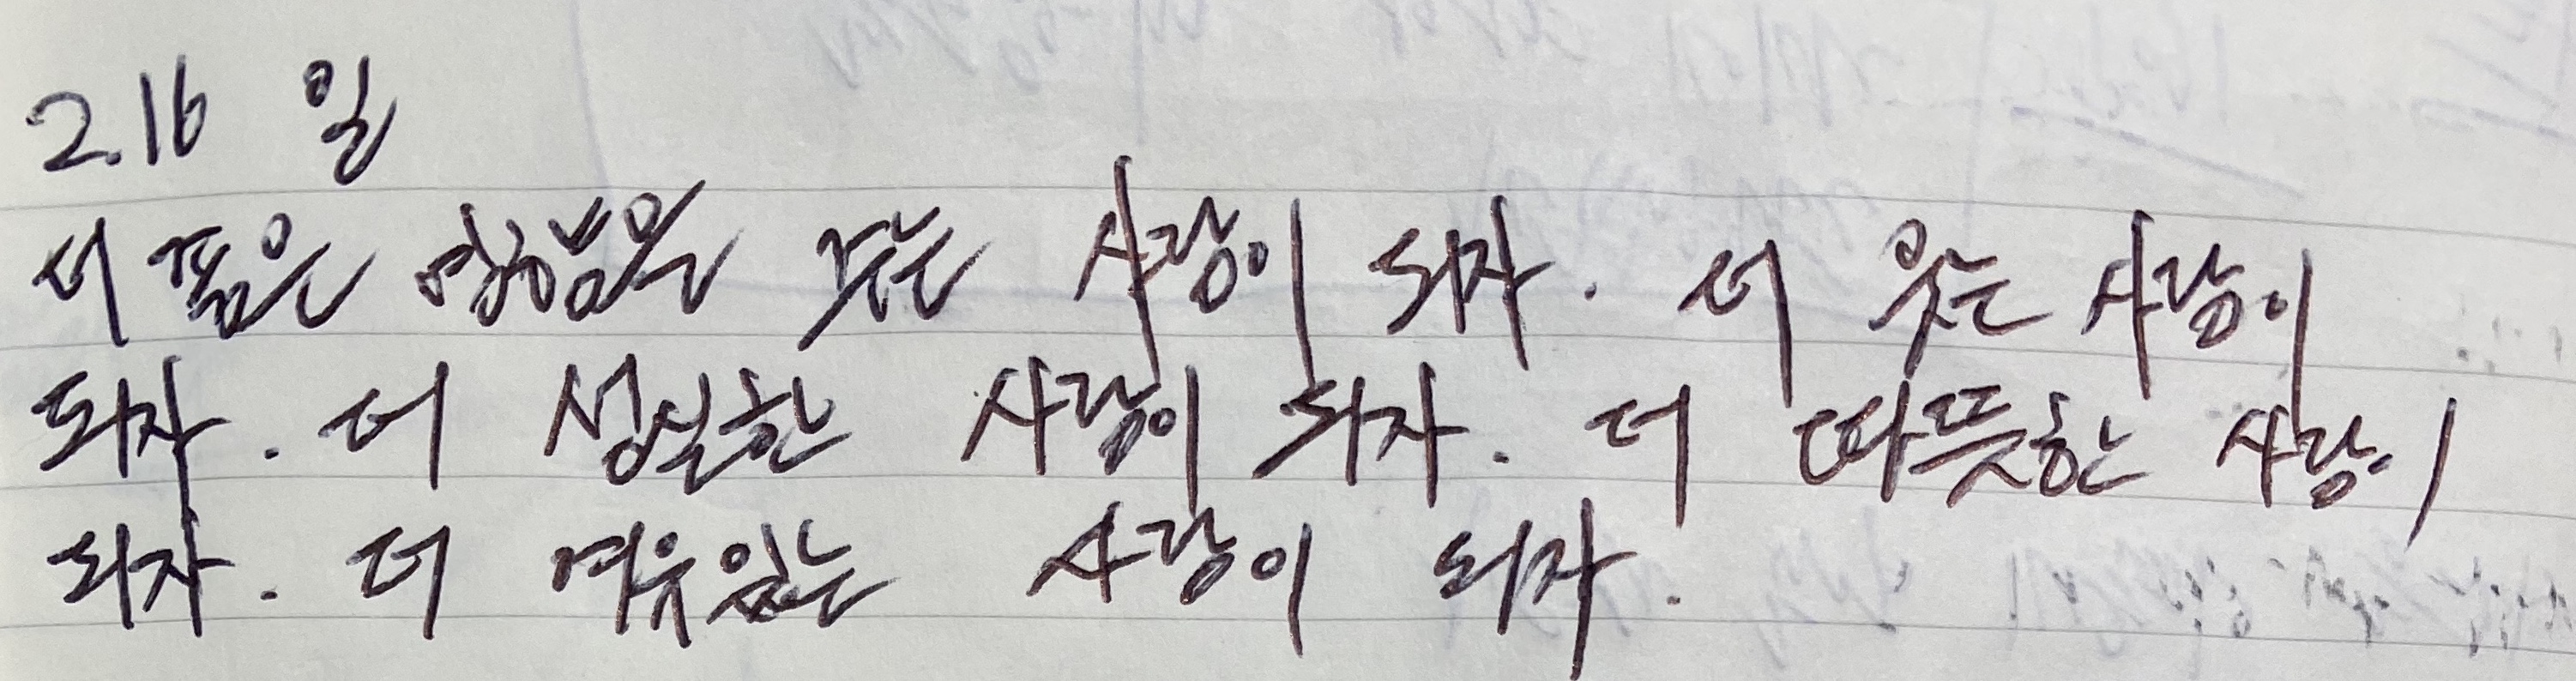 2.16 일
더 품은 영향을 주는 사람이 되자. 더 웃는 사람이
되자. 더 성실한 사람이 되자. 더 따뜻한 사람이
되자. 더 여유있는 사람이 되자.